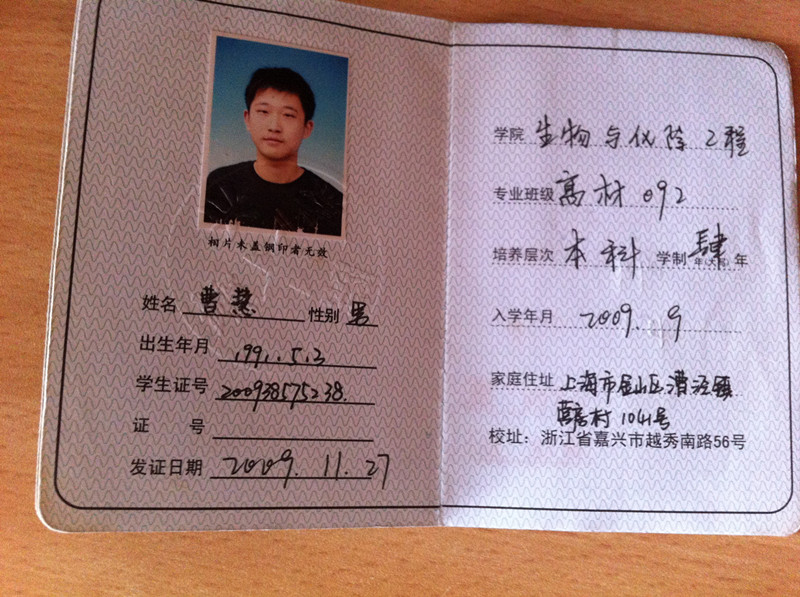 相片未盖钢印者无效
姓名 曹慧 性别 男
出生年月 1991.5.3
学生证号 200938575238.
证 号
发证日期 2009.11.27
学院 生物与化院工程
专业班级 高材092
培养层次 本科 学制 肆 年
入学年月 2009.9
家庭住址 上海市金山区漕泾镇
村1041号
校址：浙江省嘉兴市越秀南路56号